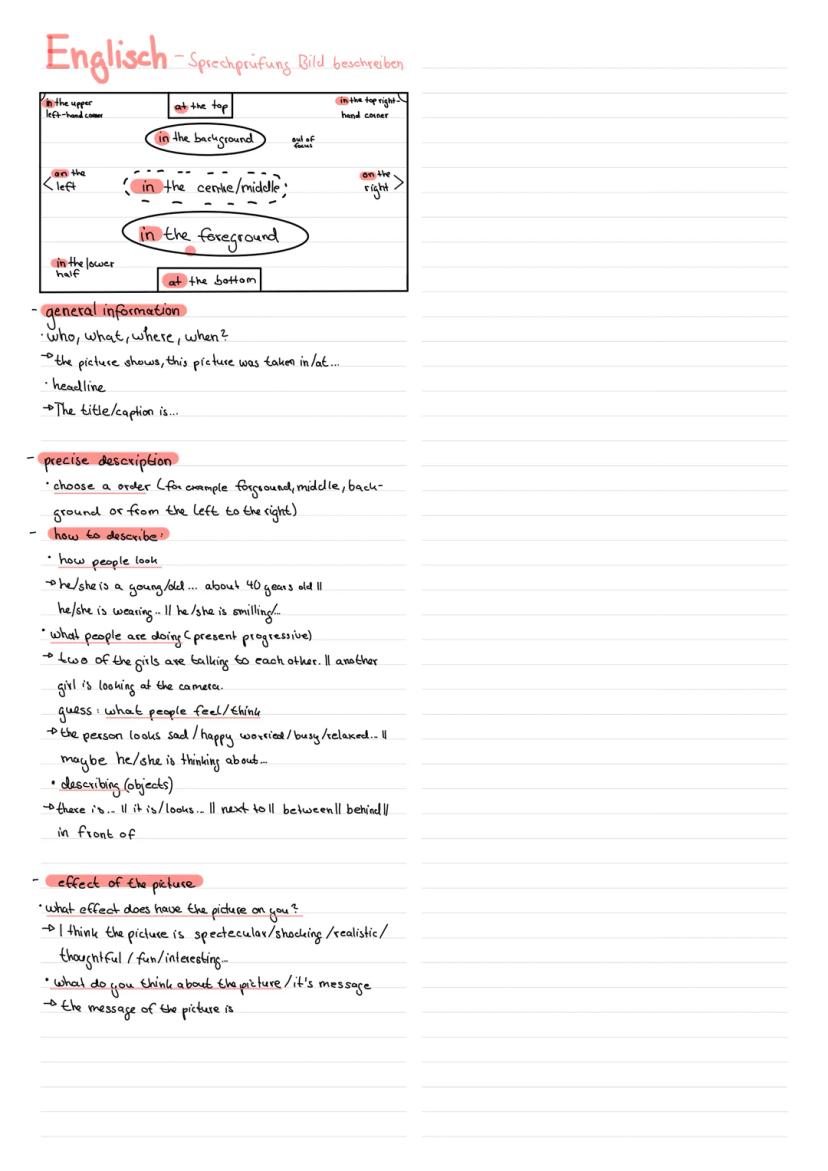 Englisch - Sprechprüfung Bild beschreiben
in the upper
left-hand corner
at the top
in the top right-
hand corner
in the background
out of
focus
on the
left
in the centre/middle
on the
right
in the foreground
in the lower
half
at the bottom
- general information
· who, what, where, when?
→ the picture shows, this picture was taken in/at...
· headline
→ The title/caption is...
- precise description
· choose a order (for example forground, middle, back-
ground or from the left to the right)
- how to describe:
· how people look
→ he/she is a young/old... about 40 years old ||
he/she is wearing.. || he/she is smilling/...
· what people are doing (present progressive)
→ two of the girls are talking to each other. || another
girl is looking at the camera.
guess: what people feel/think
→ the person looks sad/happy worried/busy/relaxed... ||
maybe he/she is thinking about...
· describing (objects)
→ there is... || it is/looks... || next to || between || behind ||
in front of
- effect of the picture
· what effect does have the picture on you?
→ I think the picture is spectecular/shocking/realistic/
thoughtful/fun/interesting...
· what do you think about the picture/it's message
→ the message of the picture is